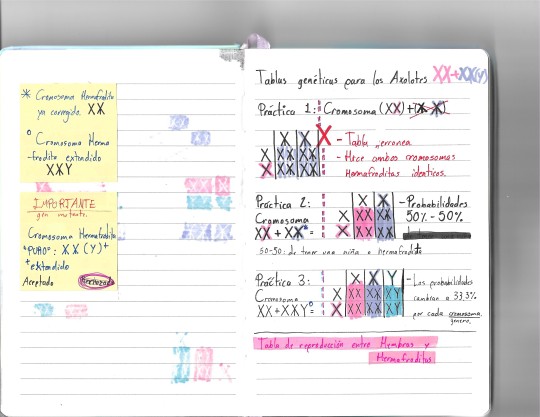 * Cromosoma Hermafrodita
ya corregido. XX
° Cromosoma Herma
-frodita extendido
XXY
IMPORTANTE
gen mutante.
Cromosoma Hermafrodita
"PURO": XX(Y)+
+extendido
Aceptado Rechazado
Tablas genéticas para los Axolotes XX+XX(Y)
Práctica 1: Cromosoma (XX)+(XX)
X X
X XX XX
X XX XX
- Tabla erronea
- Hice ambos cromosomas
Hermafroditas identicos.
Práctica 2:
Cromosoma
XX + XX* =
X X
X XX XX
X XX XX
- Probabilidades
50% - 50%
50-50: de tener una niña o hermafrodita
Práctica 3:
Cromosoma
XX+XXY°
X X Y
X XX XX XY
X XX XX XY
- Las probabilidades
cambian a 33,3%
por cada cromosoma
genero.
Tabla de reproducción entre Hembras y
Hermafroditas